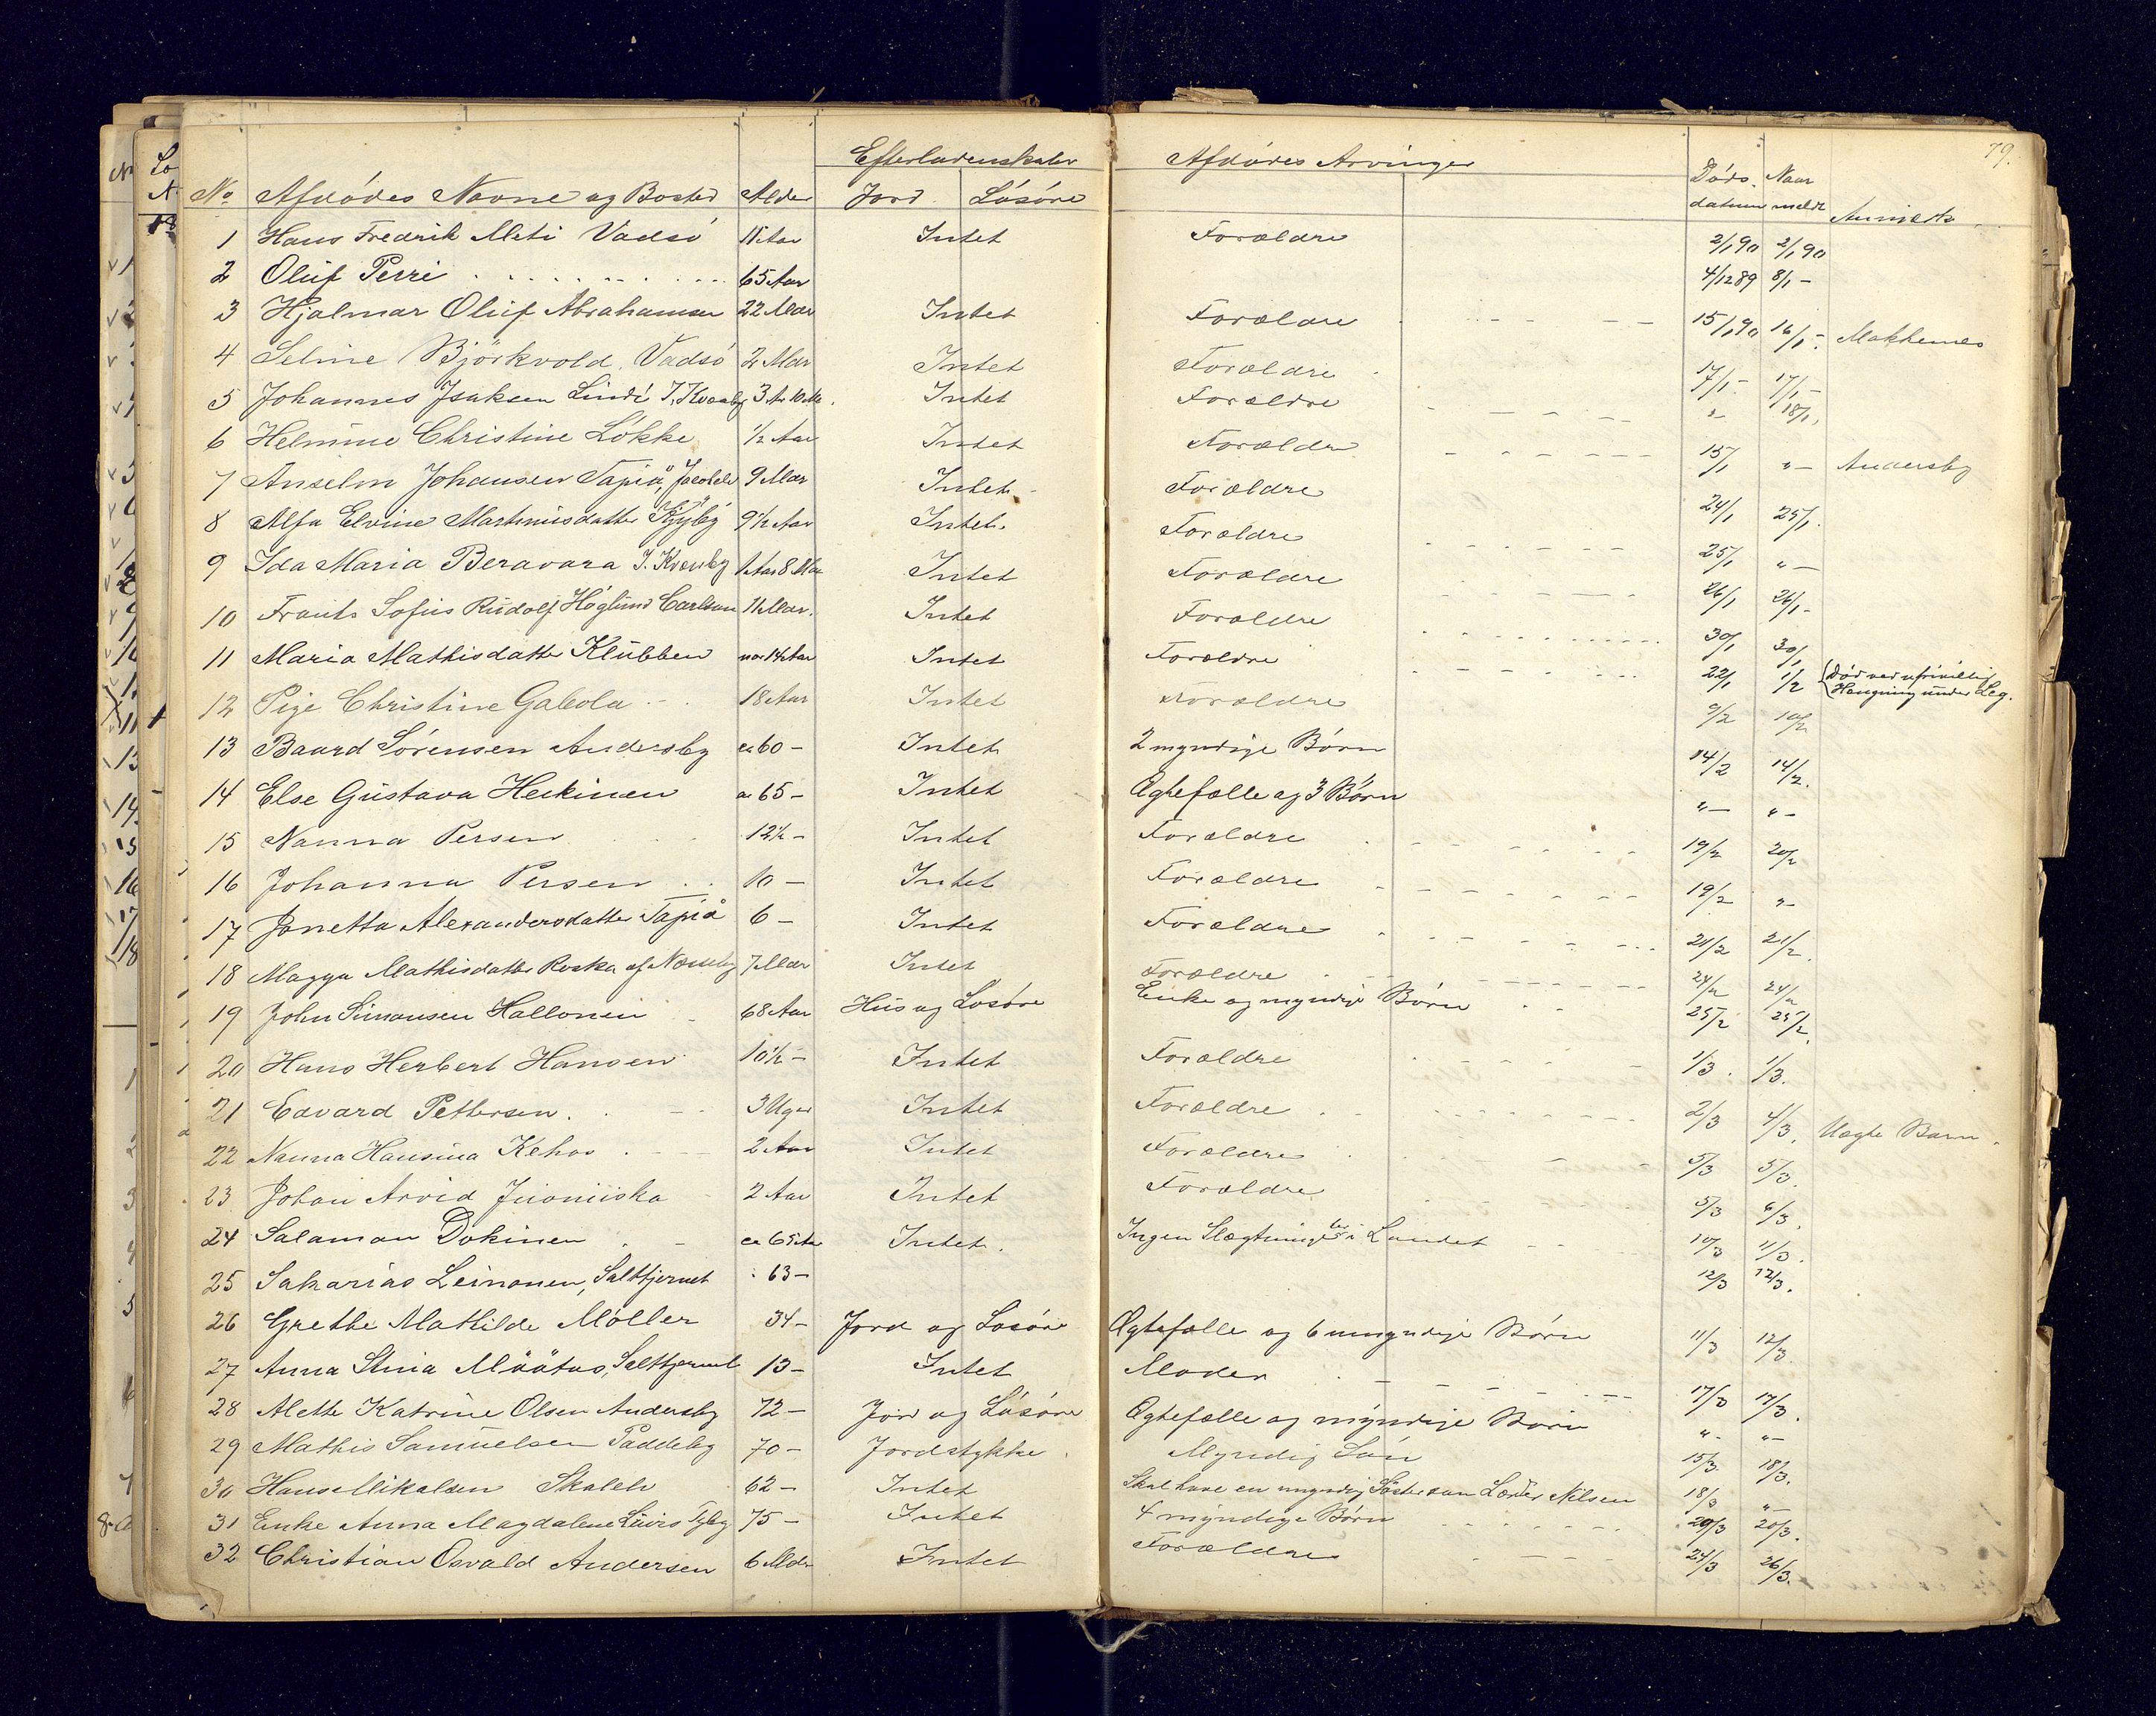 79.
Efterladenskaber
Afdödes Arvinger
No Afdödes Navne og Bosted Alder Jord Lösöre Döds datum Naar meldt Anmerk.
1 Hans Fredrik Meti Vadsö 11 Aar Intet Forældre 2/1 90 2/1 90
2 Oluf Perri 65 Aar 4/12 89 8/1 -
3 Hjalmar Oluf Abrahamsen 22 Mdr Intet Forældre 15/1 90 16/1 - Makkenes
4 Seline Björkvold, Vadsö 2 Mdr Intet Forældre 17/1 - 17/1 -
5 Johannes Isaksen Lindi I. Kvænby 3 Ar 10 M. Intet Forældre " 18/1
6 Helmine Christine Lökke 1/2 Aar Intet Forældre 15/1 " - Andersby
7 Anselm Johansen Tapiö, Jacobselv 9 Mdr Intet Forældre 24/1 25/1
8 Alfa Elvine Martinusdatter 9 1/2 Aar Intet Forældre 25/1 " -
9 Ida Maria Beravara I. Kvænby 1 Aar 8 Mdr Intet Forældre 26/1 26/1 -
10 Frants Sofus Rudolf Höglund Carlsson 11 Mdr. Intet Forældre 30/1 30/1
11 Maria Mathisdatter Klubben 14 Aar Intet Forældre 22/1 1/2 Död ved ufrivillig Hengning under Leg.
12 Pige Christine Galvola 18 Aar Intet Forældre 9/2 10/2
13 Baard Sörensen Andersby ca 60 - Intet 2 myndige Börn 14/2 14/2.
14 Else Gustava Heikinen 65 - Intet Ægtefælle og 3 Börn " - " -
15 Nanna Persen 12 1/2 - Intet Forældre 19/2 20/2
16 Johanna Persen 10 - Intet Forældre 19/2 " -
17 Janetta Alexandersdatter Tapiö 6 - Intet Forældre 21/2 21/2.
18 Magga Mathisdatter Roska af Næsseby 7 Mdr Intet Forældre 24/2 24/2
19 John Simonsen Hallonen 68 Aar Hus og Lösöre Enke og myndige Börn 25/2 25/2.
20 Hans Herbert Hansen 10 1/2 - Intet Forældre 1/3. 1/3.
21 Edvard Pettersen. 3 Uger Intet Forældre 2/3 4/3. Uægte Barn.
22 Nanna Hansina Kehos 2 Aar Intet Forældre 5/3 5/3.
23 Johan Arvid Juoniiska 2 Aar Intet Forældre 5/3 6/3.
24 Salamon Dokinen ca 65 Aar Intet. Ingen Slægtninger i Landet 10/3 11/3.
25 Sakarias Leinonen, Salttjernet 63 - 12/3 12/3.
26 Grethe Mathilde Möller 34 - Jord og Lösöre Ægtefælle og 6 umyndige Börn 11/3 12/3.
27 Anna Stina Määtas, Salttjernet 13 - Intet Moder 17/3 17/3.
28 Mette Katrine Olsen Andersby 72 - Jord og Lösöre Ægtefælle og myndige Börn " - " -
29 Mathis Samuelsen Paddeby 70 - Jordstykke Myndig Sön 15/3 18/3.
30 Hans Mikalsen Skalelv 62 - Intet Skal have en myndig Söstersön Nilsen 18/3 " -
31 Enke Anna Magdalene 75 - Intet 4 myndige Börn 20/3 20/3.
32 Christian Osvald Andersen 6 Mdr Intet Forældre 24/3 26/3.